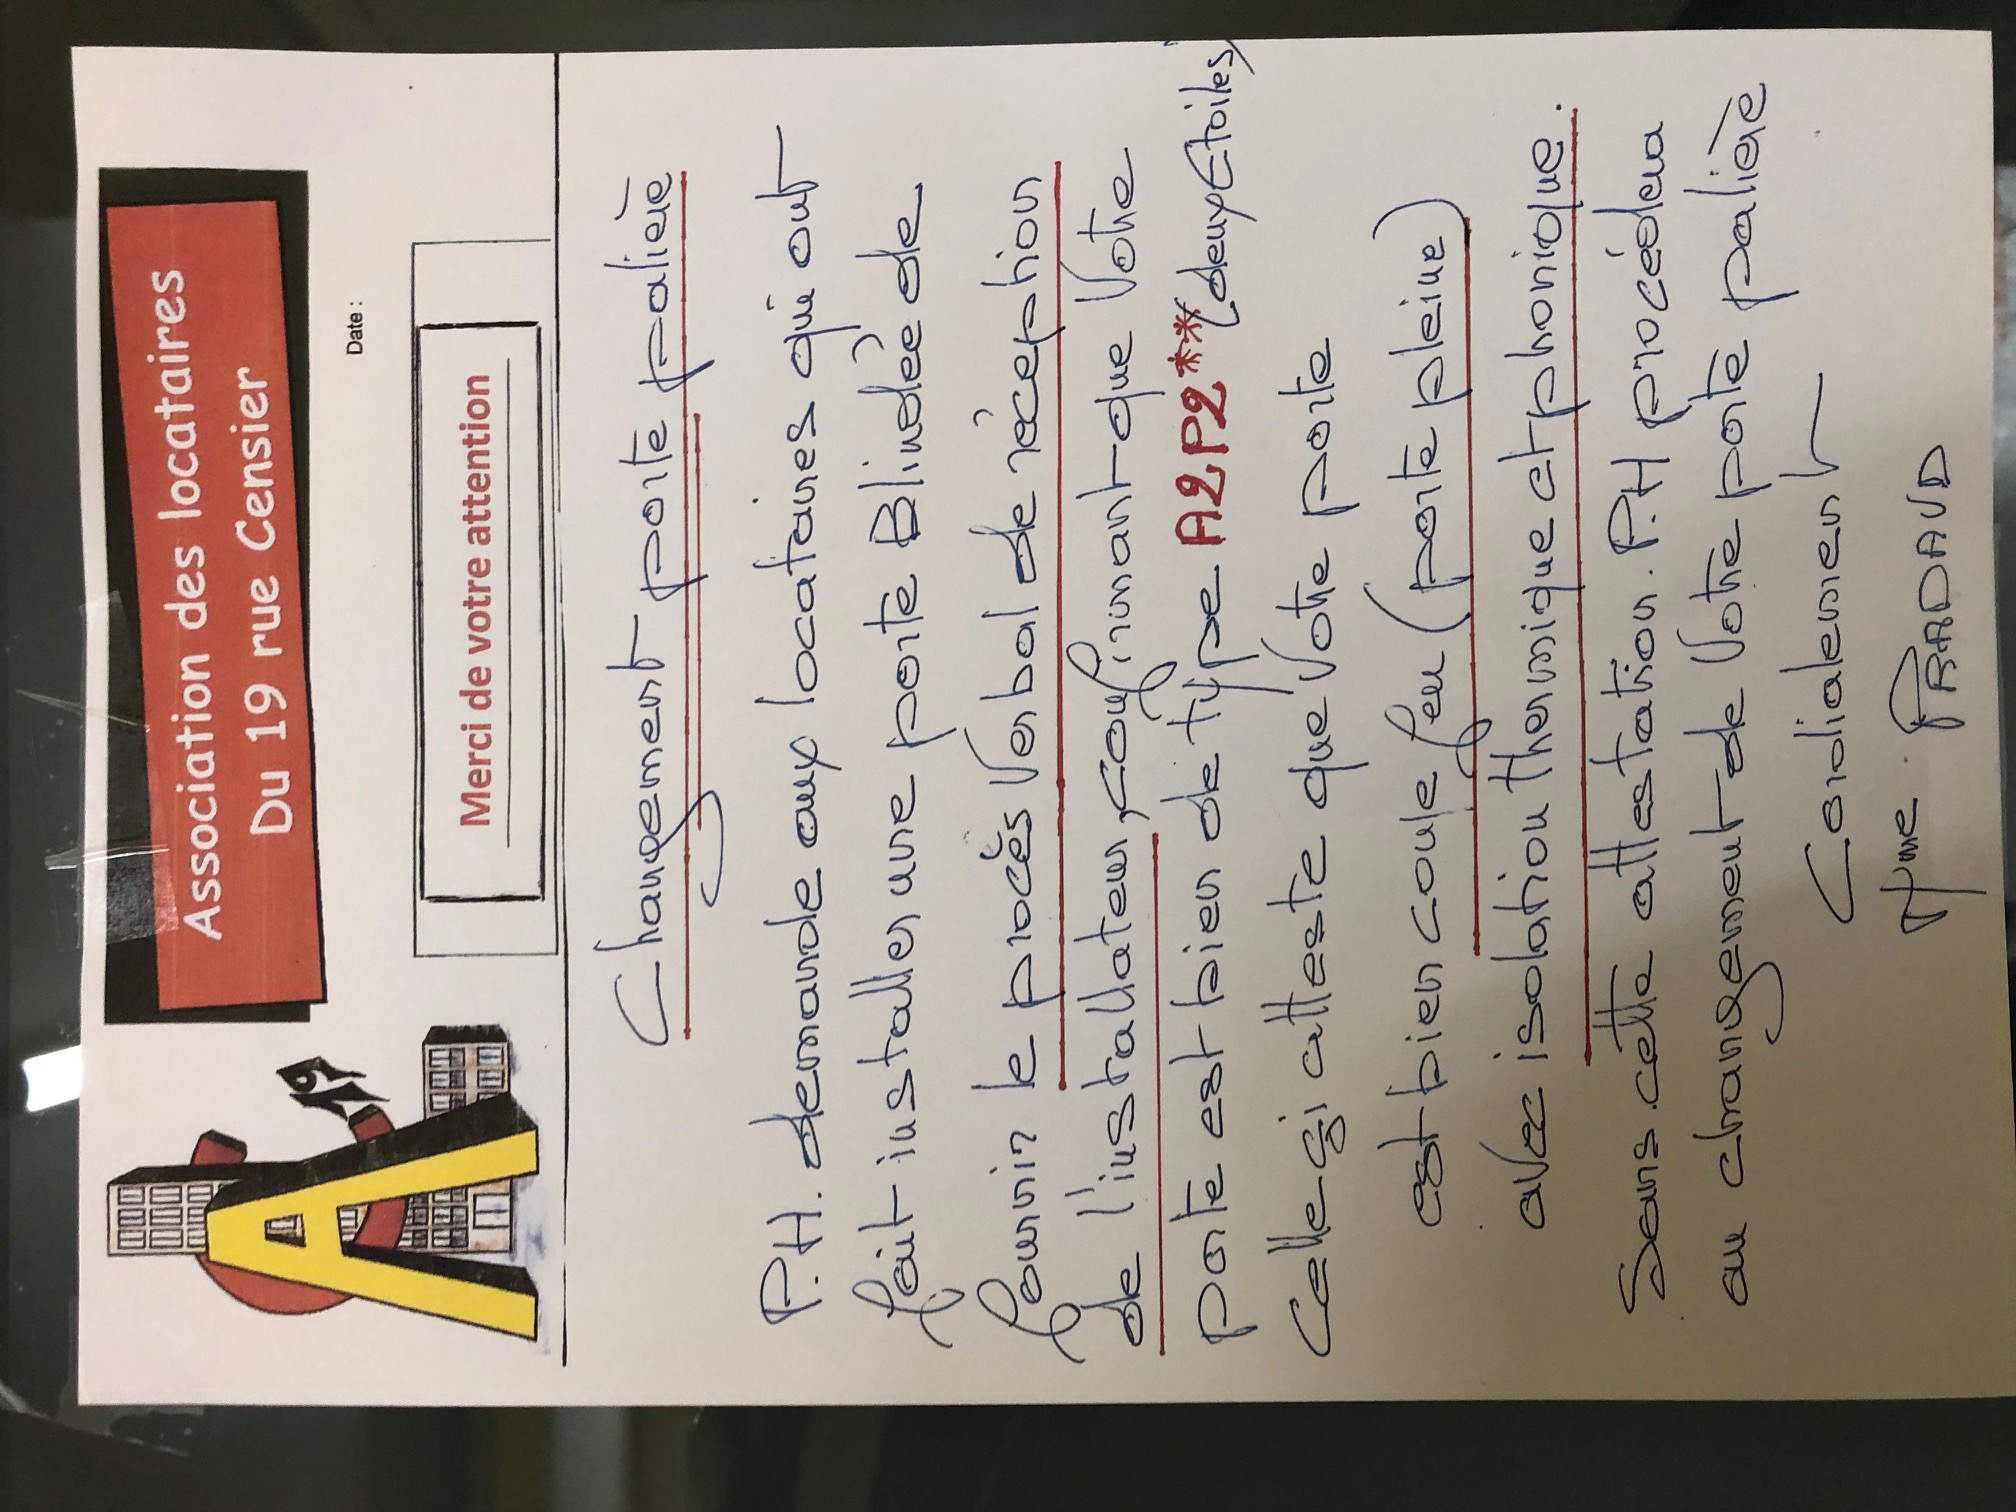 Association des locataires
Du 19 rue Censier
Date :
Merci de votre attention
Changement porte palière
P.H. demande aux locataires qui ont
fait installer une porte Blindée de
fournir le procès Verbal de réception
de l'installateur, confirmant que Votre
porte est bien de type A2P2** (deux Etoiles)
Celle çi atteste que Votre porte
est bien coupe feu (porte pleine)
avec isolation thermique et phonique.
Sans cette attestation. P.H procédera
au changement de Votre porte palière
Cordialement
Mme FRADAUD